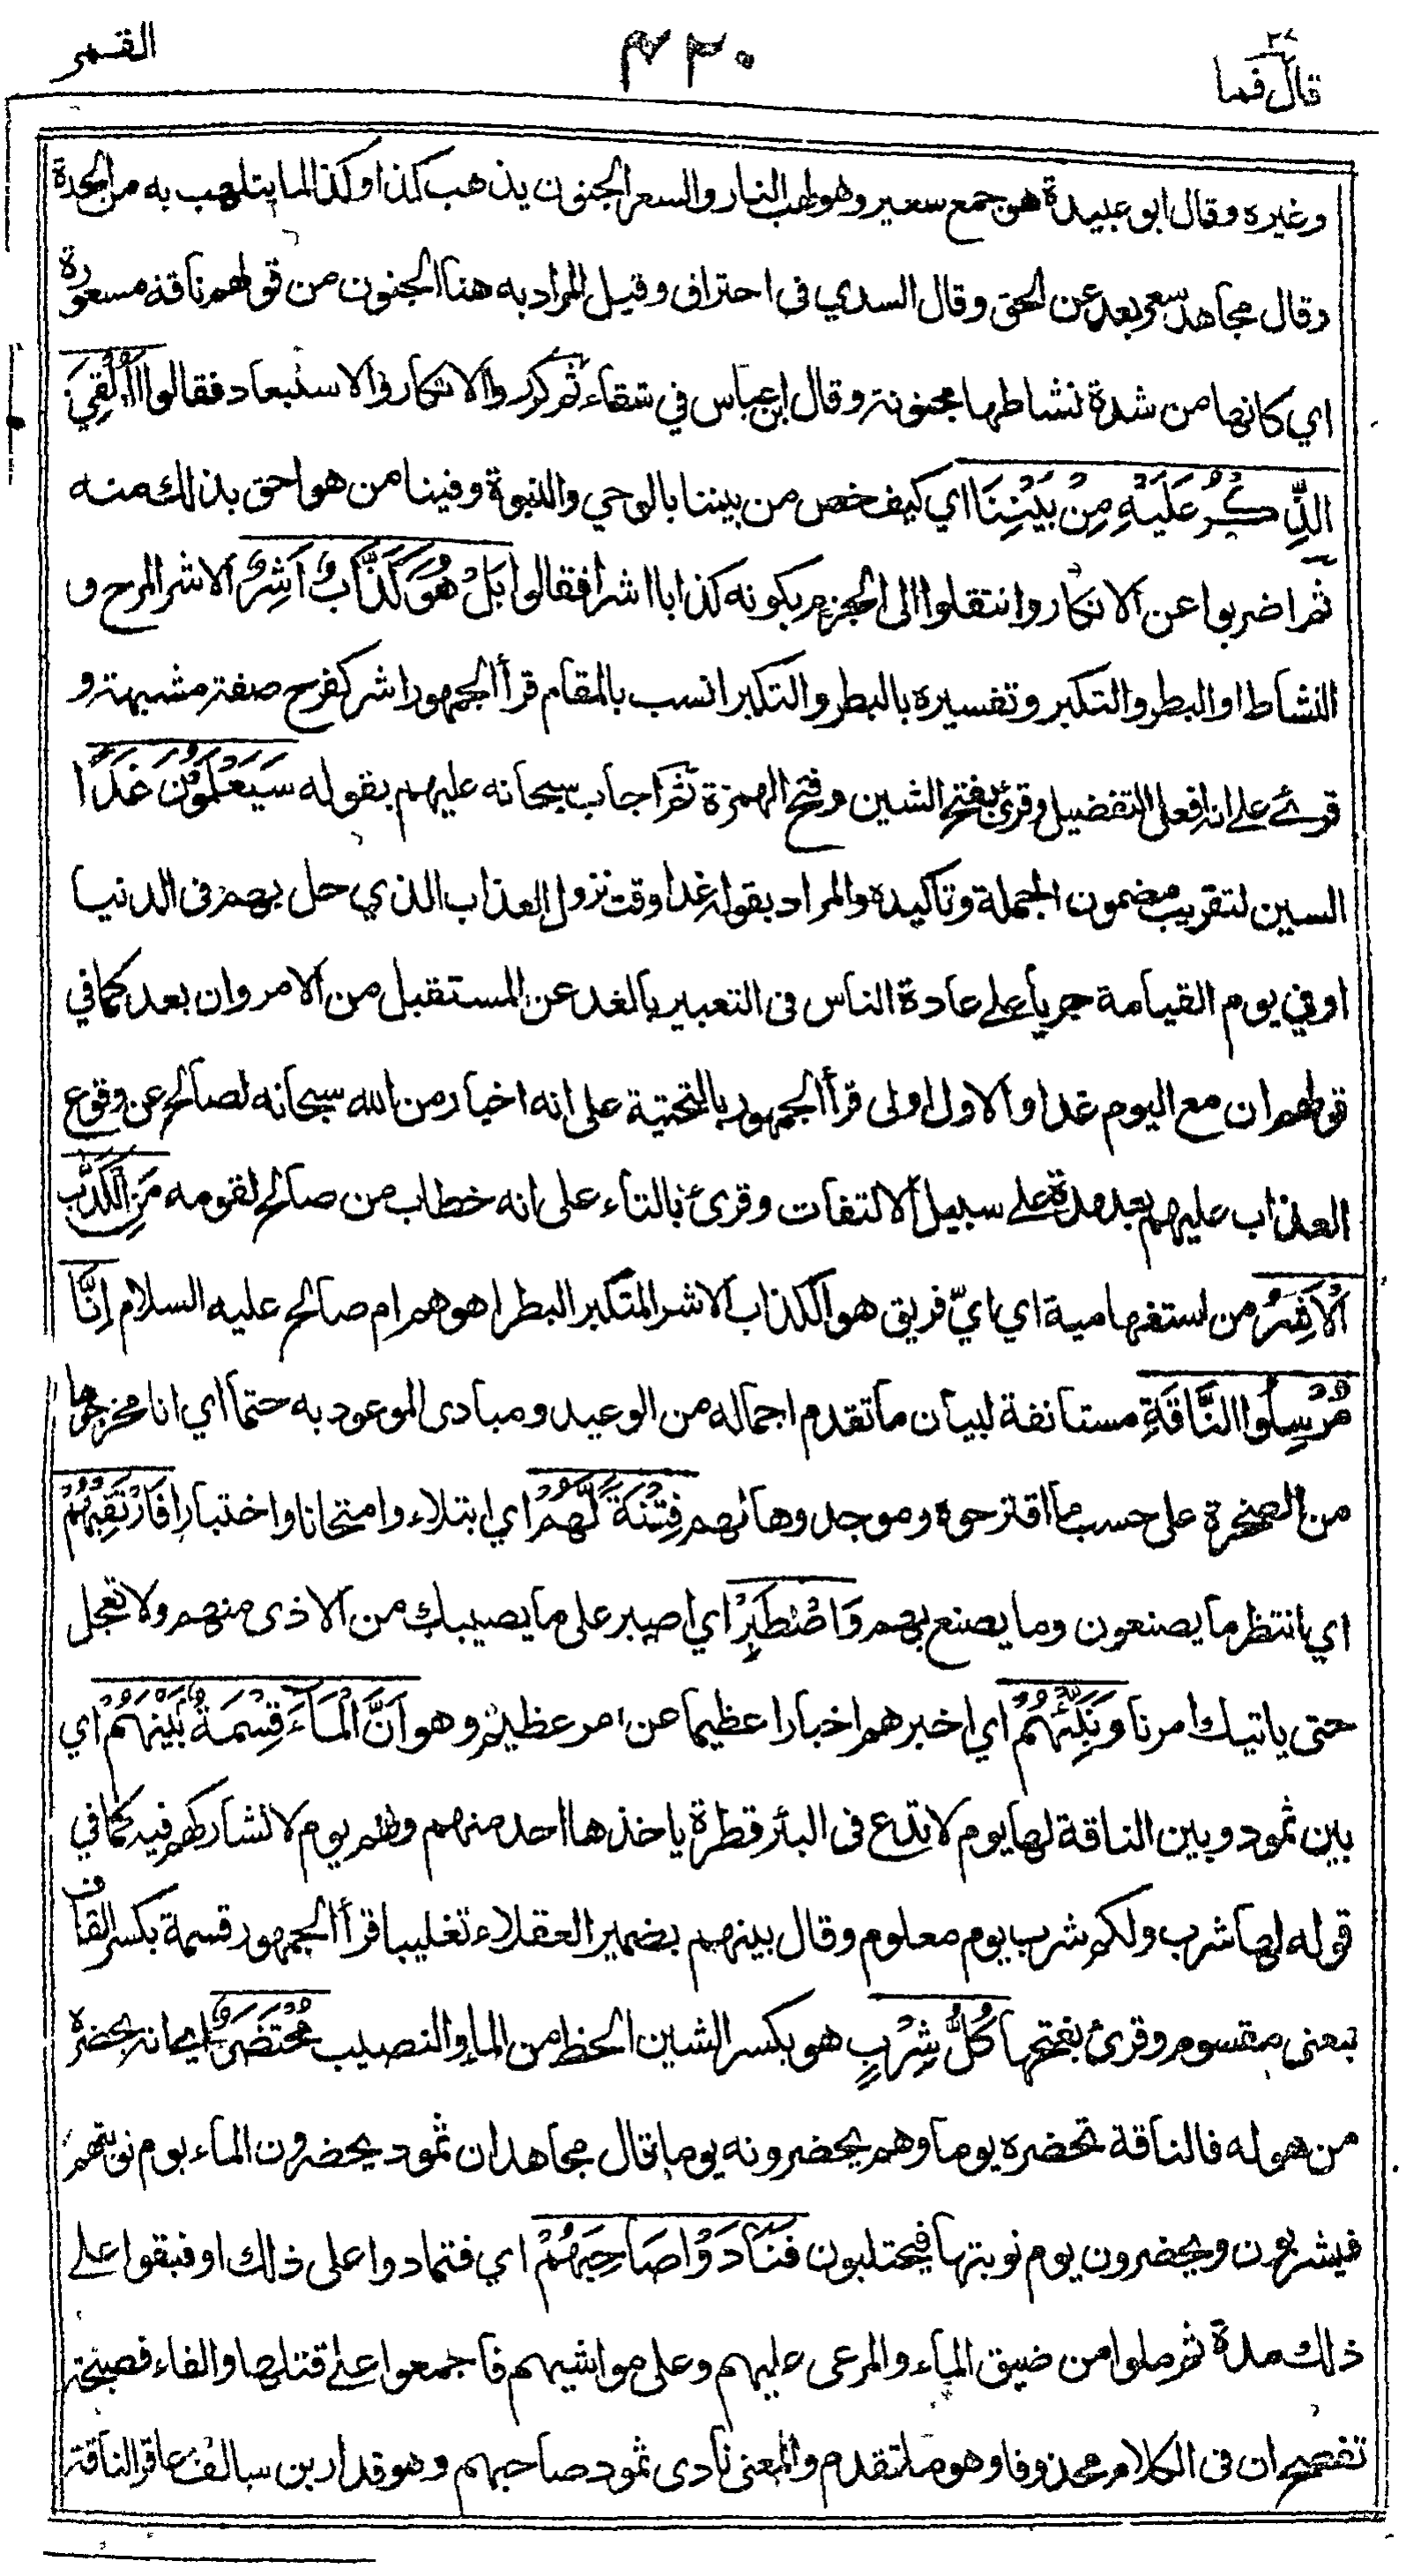 قال فما ٢٧
٤٣٠
القمر
وغيره وقال ابو عبيدة هو جمع سعير وهو لهب النار والسعر الجنون يذهب كذا وكذا لما يتلهب به من الحدة
وقال مجاهد سعر بعد عن الحق وقال السدي فى احتراق وقيل المراد به هنا الجنون من قولهم ناقة مسعورة
اي كانها من شدة نشاطها مجنونة وقال ابن عباس في شقاء ثم كرروا الانكار والاستبعاد فقالوا أَأُلْقِيَ
الذِّكْرُ عَلَيْهِ مِنْ بَيْنِنَا اي كيف خص من بيننا بالوحي والنبوة وفينا من هو احق بذلك منه
ثم اضربوا عن الانكار وانتقلوا الى الجزم بكونه كذابا اشرا فقالوا بَلْ هُوَ كَذَّابٌ اَشِرٌ الاشر المرح و
النشاط او البطر والتكبر وتفسيره بالبطر والتكبر انسب بالمقام قرأ الجمهور اشر كفرح صفة مشبهة و
قرئ على انه افعل التفضيل وقرئ بفتح الشين وفتح الهمزة ثم اجاب سبحانه عليهم بقوله سَيَعْلَمُوْنَ غَدًا
السين لتقريب مضمون الجملة وتاكيده والمراد بقوله غدا وقت نزول العذاب الذي حل بهم فى الدنيا
او في يوم القيامة جريا على عادة الناس فى التعبير بالغد عن المستقبل من الامر وان بعد كما في
قولهم ان مع اليوم غدا والاول اولى قرأ الجمهور بالتحتية على انه اخبار من الله سبحانه لصالح عن وقوع
العذاب عليهم بعد مدة على سبيل الالتفات وقرئ بالتاء على انه خطاب من صالح لقومه مَنِ الْكَذَّابُ
الْاَشِرُ من استفهامية اي ايّ فريق هو الكذاب الاشر المتكبر البطر اهو هم ام صالح عليه السلام اِنَّا
مُرْسِلُوا النَّاقَةِ مستانفة لبيان ما تقدم اجماله من الوعيد ومبادى الموعود به حتما اي انا مخرجوها
من الصخرة على حسب ما اقترحوه وموجدوها لهم فِتْنَةً لَّهُمْ اي ابتلاء وامتحانا واختبارا فَارْتَقِبْهُمْ
اي انتظر ما يصنعون وما يصنع بهم وَاصْطَبِرْ اي اصبر على ما يصيبك من الاذى منهم ولا تعجل
حتى ياتيك امرنا وَنَبِّئْهُمْ اي اخبرهم اخبارا عظيما عن امر عظيم وهو اَنَّ الْمَاءَ قِسْمَةٌ بَيْنَهُمْ اي
بين ثمود وبين الناقة لها يوم لا تدع فى البئر قطرة ياخذها احد منهم ولهم يوم لا تشاركهم فيه كما في
قوله لها شرب ولكم شرب يوم معلوم وقال بينهم بضمير العقلاء تغليبا قرأ الجمهور قسمة بكسر القاف
بمعنى مقسوم وقرئ بفتحها كُلُّ شِرْبٍ هو بكسر الشين الحظ من الماء والنصيب مُحْتَضَرٌ اي انه يحضره
من هو له فالناقة تحضره يوما وهم يحضرونه يوما قال مجاهد ان ثمود يحضرون الماء يوم نوبتهم
فيشربون ويحضرون يوم نوبتها فيحتلبون فَنَادَوْا صَاحِبَهُمْ اي فتمادوا على ذلك او فبقوا على
ذلك مدة ثم ملوا من ضيق الماء والمرعى عليهم وعلى مواشيهم فاجمعوا على قتلها والفاء فصيحة
تفصح ان فى الكلام محذوفا وهو ما تقدم والمعنى نادى ثمود صاحبهم وهو قدار بن سالف عاقر الناقة